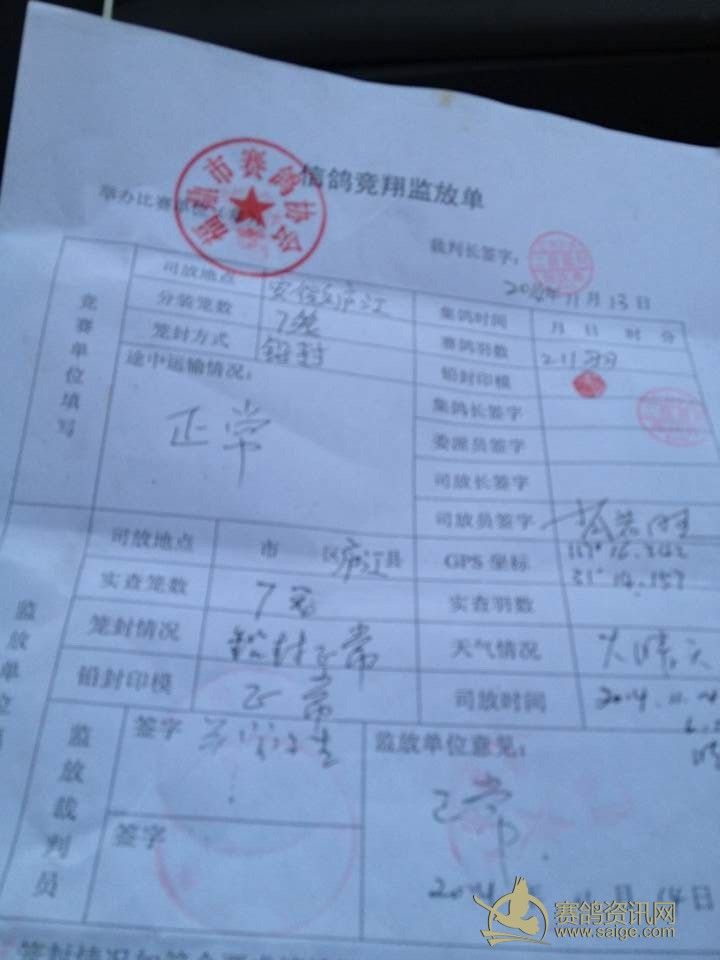 信鸽竞翔监放单
市赛鸽协会
举办比赛单位
裁判长签字：
2014年11月13日
竞赛单位填写
司放地点 安徽庐江
集鸽时间 月 日 时 分
分装笼数 7笼
赛鸽羽数 211羽
笼封方式 铅封
铅封印模
途中运输情况：
正常
集鸽长签字
委派员签字
司放长签字
司放员签字
监放单位
司放地点 市 区庐江县
GPS 坐标 117°16.242
31°14.157
实查笼数 7笼
实查羽数
笼封情况 铅封正常
天气情况 大晴天
铅封印模 正常
司放时间 2014.11.14
监放裁判员
签字
监放单位意见：
正常
签字
2014年11月14日
赛鸽资讯网
www.saige.com